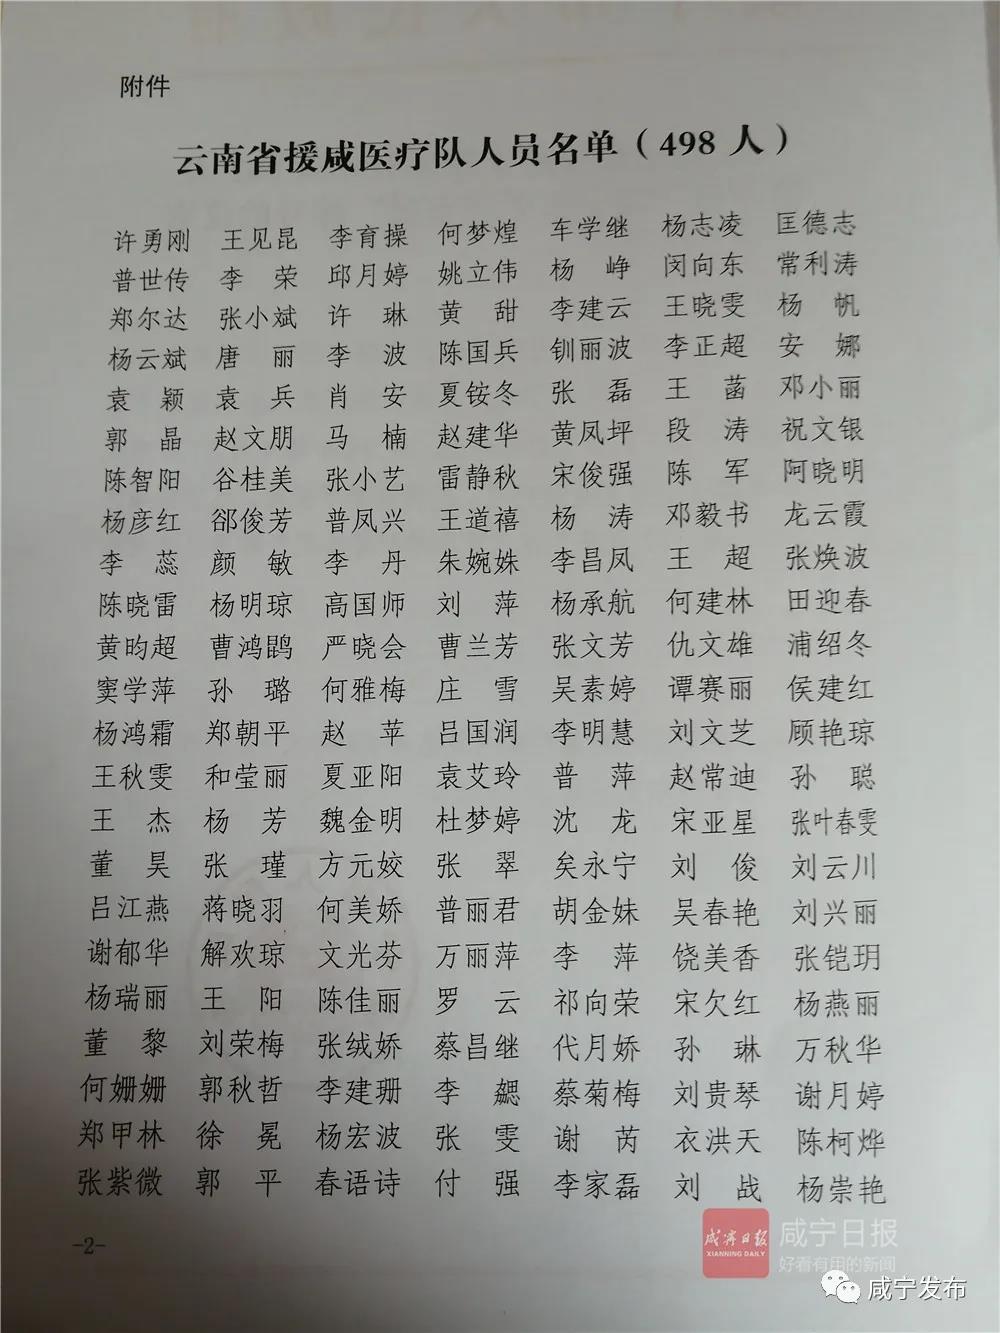 附件
云南省援咸医疗队人员名单（498人）
许勇刚 王见昆 李育操 何梦煌 车学继 杨志凌 匡德志
普世传 李荣 邱月婷 姚立伟 杨峥 闵向东 常利涛
郑尔达 张小斌 许琳 黄甜 李建云 王晓雯 杨帆
杨云斌 唐丽 李波 陈国兵 钏丽波 李正超 安娜
袁颖 袁兵 肖安 夏铵冬 张磊 王菡 邓小丽
郭晶 赵文朋 马楠 赵建华 黄凤坪 段涛 祝文银
陈智阳 谷桂美 张小艺 雷静秋 宋俊强 陈军 阿晓明
杨彦红 郤俊芳 普凤兴 王道禧 杨涛 邓毅书 龙云霞
李蕊 颜敏 李丹 朱婉姝 李昌凤 王超 张焕波
陈晓雷 杨明琼 高国师 刘萍 杨承航 何建林 田迎春
黄昀超 曹鸿鹍 严晓会 曹兰芳 张文芳 仇文雄 浦绍冬
窦学萍 孙璐 何雅梅 庄雪 吴素婷 谭赛丽 侯建红
杨鸿霜 郑朝平 赵苹 吕国润 李明慧 刘文芝 顾艳琼
王秋雯 和莹丽 夏亚阳 袁艾玲 普萍 赵常迪 孙聪
王杰 杨芳 魏金明 杜梦婷 沈龙 宋亚星 张叶春雯
董昊 张瑾 方元姣 张翠 矣永宁 刘俊 刘云川
吕江燕 蒋晓羽 何美娇 普丽君 胡金妹 吴春艳 刘兴丽
谢郁华 解欢琼 文光芬 万丽萍 李萍 饶美香 张铠玥
杨瑞丽 王阳 陈佳丽 罗云 祁向荣 宋欠红 杨燕丽
董黎 刘荣梅 张绒娇 蔡昌继 代月娇 孙琳 万秋华
何姗姗 郭秋哲 李建珊 李勰 蔡菊梅 刘贵琴 谢月婷
郑甲林 徐冕 杨宏波 张雯 谢芮 衣洪天 陈柯烨
张紫微 郭平 春语诗 付强 李家磊 刘战 杨崇艳
-2-
咸宁日报 XIANNING DAILY 咸宁日报
好看有用的新闻
咸宁发布